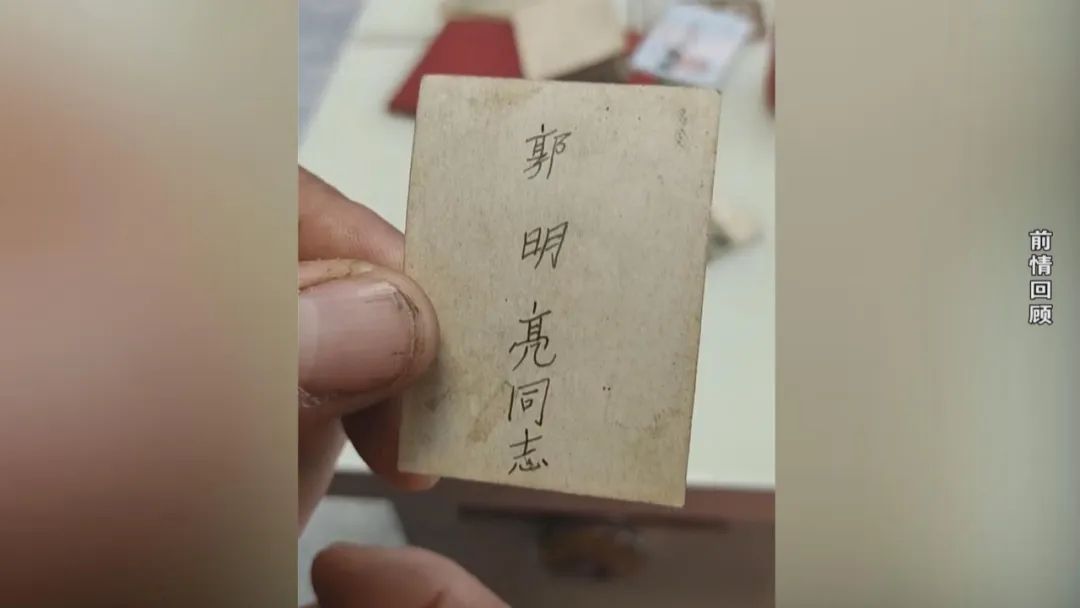 郭明亮同志
前情回顾